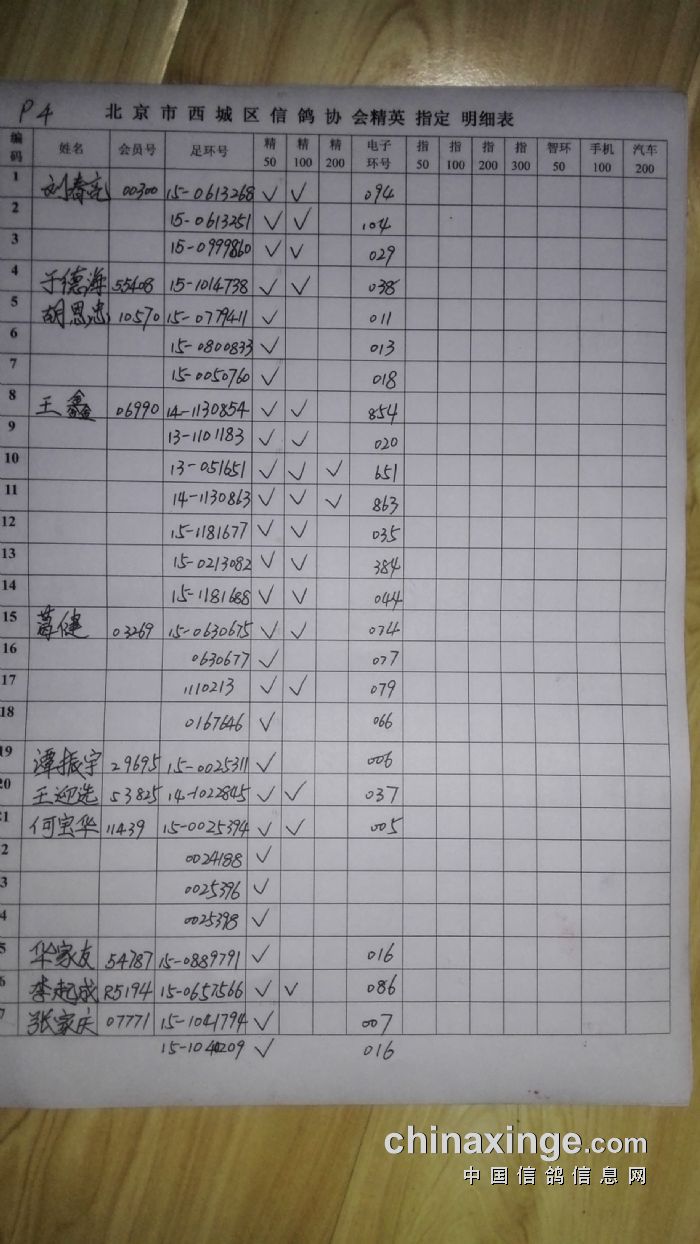 P4 北京市西城区信鸽协会精英 指定 明细表
编码 姓名 会员号 足环号 精50 精100 精200 电子环号 指50 指100 指200 指300 智环50 手机100 汽车200
1 刘春亮 00300 15-0613268 ✓ ✓ 094
2 15-0613251 ✓ ✓ 104
3 15-0999860 ✓ ✓ 029
4 于德海 55408 15-1014738 ✓ ✓ 038
5 胡思忠 10570 15-0779411 ✓ 011
6 15-0800833 ✓ 013
7 15-0050760 ✓ 018
8 王鑫 06990 14-1130854 ✓ ✓ 854
9 13-1101183 ✓ ✓ 020
10 13-051651 ✓ ✓ ✓ 651
11 14-1130863 ✓ ✓ ✓ 863
12 15-1181677 ✓ ✓ 035
13 15-0213082 ✓ ✓ 384
14 15-1181688 ✓ ✓ 044
15 葛健 03269 15-0630675 ✓ ✓ 074
16 0630677 ✓ 077
17 1110213 ✓ ✓ 079
18 0167646 ✓ 066
19 谭振宇 29695 15-0025311 ✓ 006
20 王迎选 53825 14-1022845 ✓ ✓ 037
21 何宝华 11439 15-0025394 ✓ ✓ 005
2 0024188 ✓
3 0025396 ✓
4 0025398 ✓
5 华家友 54787 15-0889791 ✓ 016
6 李起成 R5194 15-0657566 ✓ ✓ 086
7 张家庆 07771 15-1041794 ✓ 007
15-1040209 ✓ 016
chinaxinge.com
中国信鸽信息网